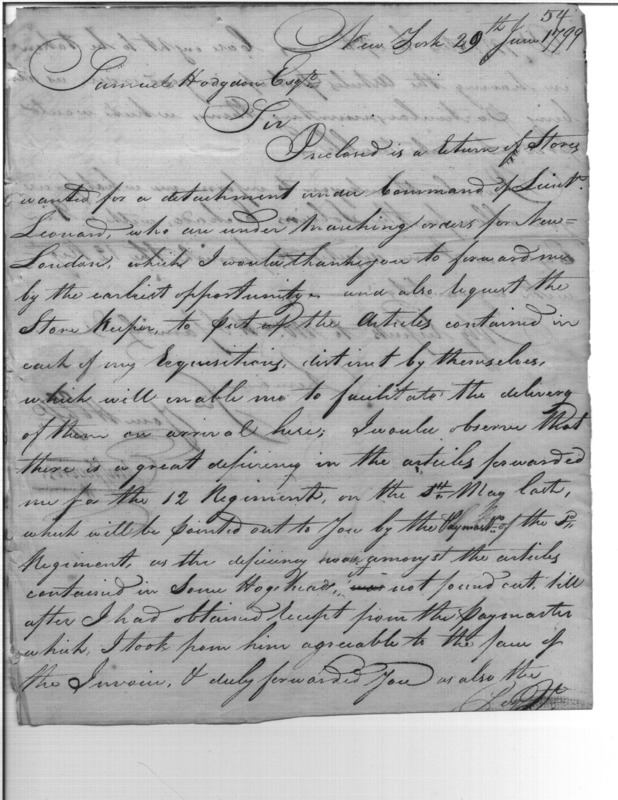 54
New York 29th June 1799
Samuel Hodgdon Esqr.
Sir
Inclosed is a return of Stores,
wanted for a detachment under Command of Lieut.
Leonard, who are under Marching orders for New=
London, which I would thank you to forward me
by the earliest opportunity. and also request the
Store keeper, to put up the Articles contained in
each of my Requisitions, distinct by themselves,
which will enable me to facilitate the delivery
of them on arrival here; I would observe that
there is a great deficiency in the articles forwarded
me for the 12 Regiment, on the May last,
which will be pointed out to You by the Paymastr. of the Sd.
Regiment, as the deficiency was amongst the articles
contained in Some Hogsheads, not found out till
after I had obtained receipt from the Paymaster
which, I took from him agreeable to the face of
the Invoice, & duly forwarded You as also the